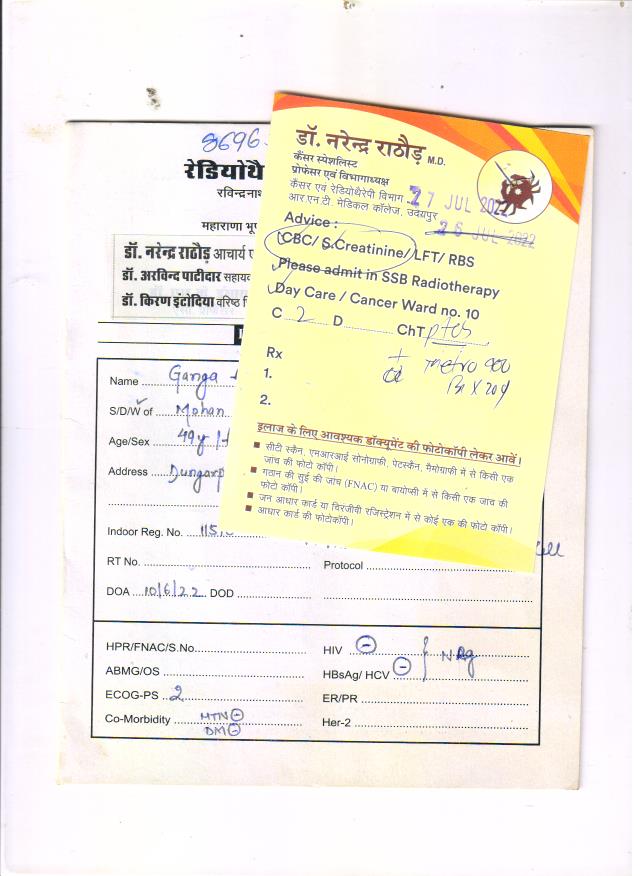 8696-
रेडियोथै
रविन्द्रना
महाराणा भू
डॉ. नरेन्द्र राठौड़ आचार्य ए
डॉ. अरविन्द पाटीदार सहाय
डॉ. किरण इंटोदिया वरिष्ठ
Name Ganga
S/D/W of Mohan
Age/Sex 49y
Address Dungarp
Indoor Reg. No. 115
RT No. Protocol
DOA 10/6/22 DOD
HPR/FNAC/S.No. HIV ⊖
ABMG/OS HBsAg/ HCV ⊖
ECOG-PS 2 ER/PR
Co-Morbidity HTN ⊖ Her-2
DM ⊖
डॉ. नरेन्द्र राठौड़ M.D.
कैंसर स्पेशलिस्ट
प्रोफेसर एवं विभागाध्यक्ष
कैंसर एवं रेडियोथैरेपी विभाग
आर.एन.टी. मेडिकल कॉलेज, उदयपुर
27 JUL 2022
26 JUL 2022
Advice :
CBC/ S.Creatinine/ LFT/ RBS
Please admit in SSB Radiotherapy
Day Care / Cancer Ward no. 10
C 2 D ChT
Rx
Metro 400
1.
2.
इलाज के लिए आवश्यक डॉक्यूमेंट की फोटोकॉपी लेकर आवें।
सीटी स्कैन, एमआरआई सोनोग्राफी, पेटस्कैन, मैमोग्राफी में से किसी एक
जांच की फोटो कॉपी।
गठान की सुई की जांच (FNAC) या बायोप्सी में से किसी एक जाच की
फोटो कॉपी।
जन आधार कार्ड या चिरंजीवी रजिस्ट्रेशन में से कोई एक की फोटो कॉपी।
आधार कार्ड की फोटोकॉपी।